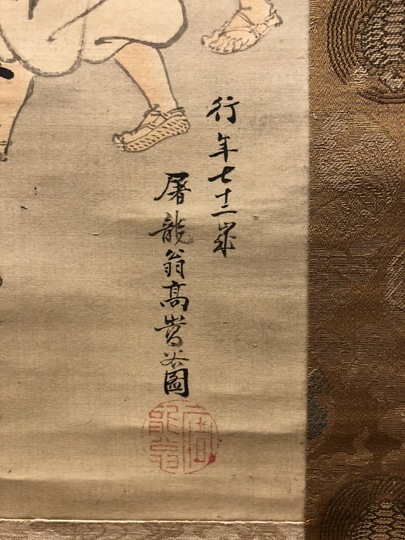 行年七十二嵗
屠龍翁高嵩谷圖